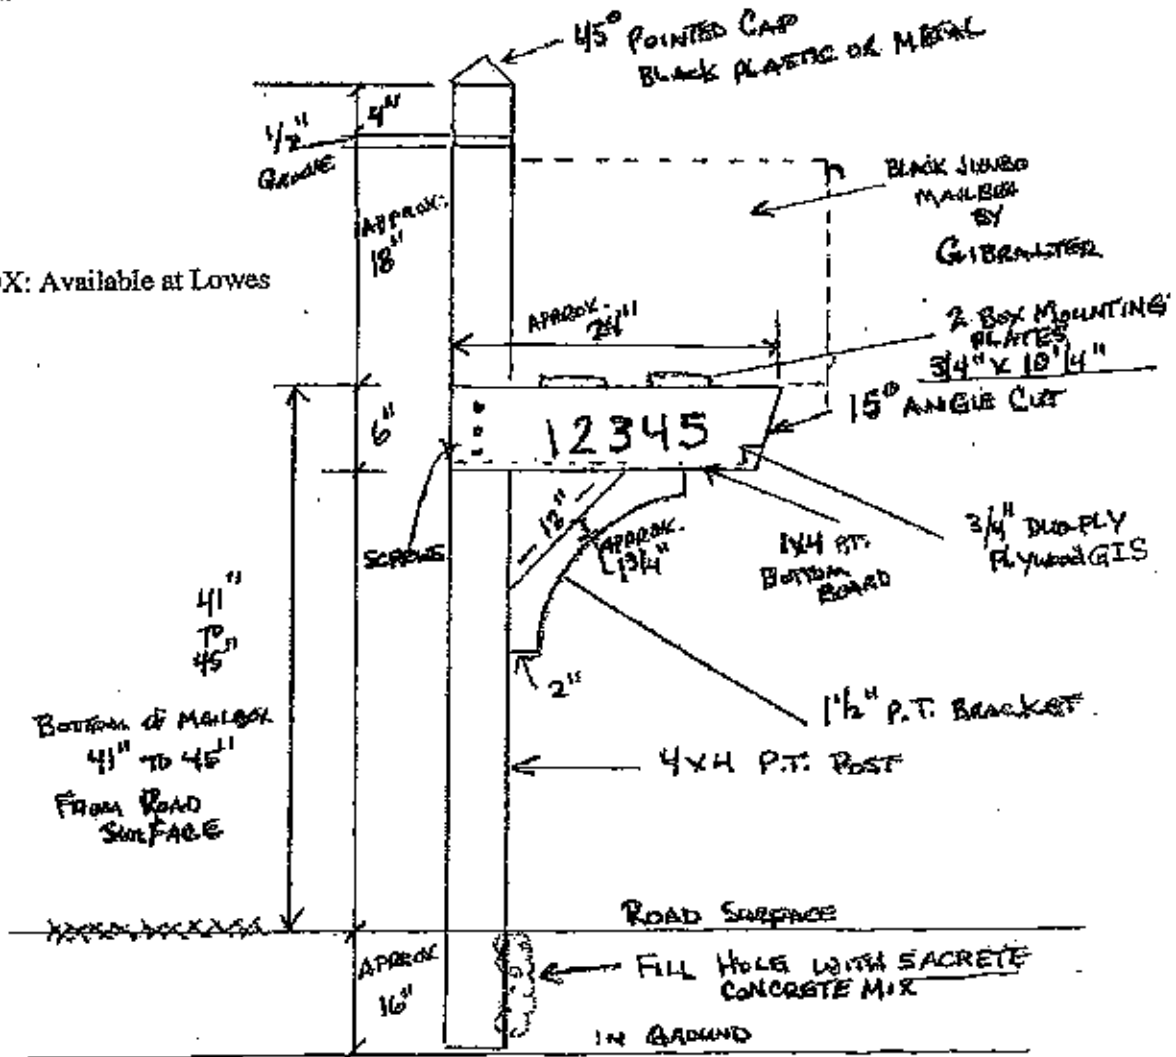 45° POINTED CAP
BLACK PLASTIC OR METAL
4"
1/2"
GROOVE
APPROX.
18"
BLACK JUMBO
MAILBOX
BY
GIBRALTER
OX: Available at Lowes
APPROX.
24"
2 BOX MOUNTING
PLATES
3/4" X 10 1/4"
15° ANGLE CUT
6"
12345
12"
APPROX.
1 3/4"
SCREWS
1X4 P.T.
BOTTOM
BOARD
3/4" DUO-PLY
PLYWOOD GIS
41"
TO
45"
2"
1 1/2" P.T. BRACKET
BOTTOM OF MAILBOX
41" TO 45"
FROM ROAD
SURFACE
4 X 4 P.T. POST
ROAD SURFACE
APPROX
16"
FILL HOLE WITH SACRETE
CONCRETE MIX
IN GROUND